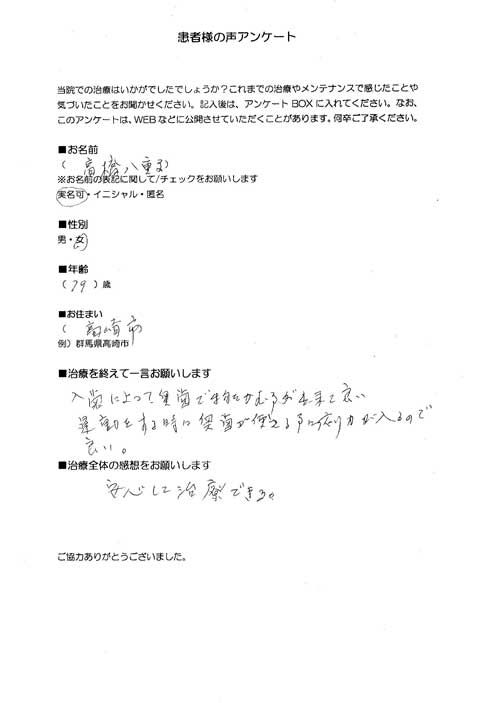 患者様の声アンケート
当院での治療はいかがでしたでしょうか？これまでの治療やメンテナンスで感じたことや
気づいたことをお聞かせください。記入後は、アンケート BOX に入れてください。なお、
このアンケートは、WEBなどに公開させていただくことがあります。何卒ご了承ください。
■お名前
( 高橋八重子)
※お名前の表記に関して/チェックをお願いします
実名可・イニシャル・匿名
■性別
男・女
■年齢
( 79 ) 歳
■お住まい
( 高崎市
例）群馬県高崎市
■治療を終えて一言お願いします
入歯によって奥歯で物をかむ事が出来て良い
運動をする時に奥歯が使える事に依り力が入るので
良い。
■治療全体の感想をお願いします
安心して治療できる
ご協力ありがとうございました。